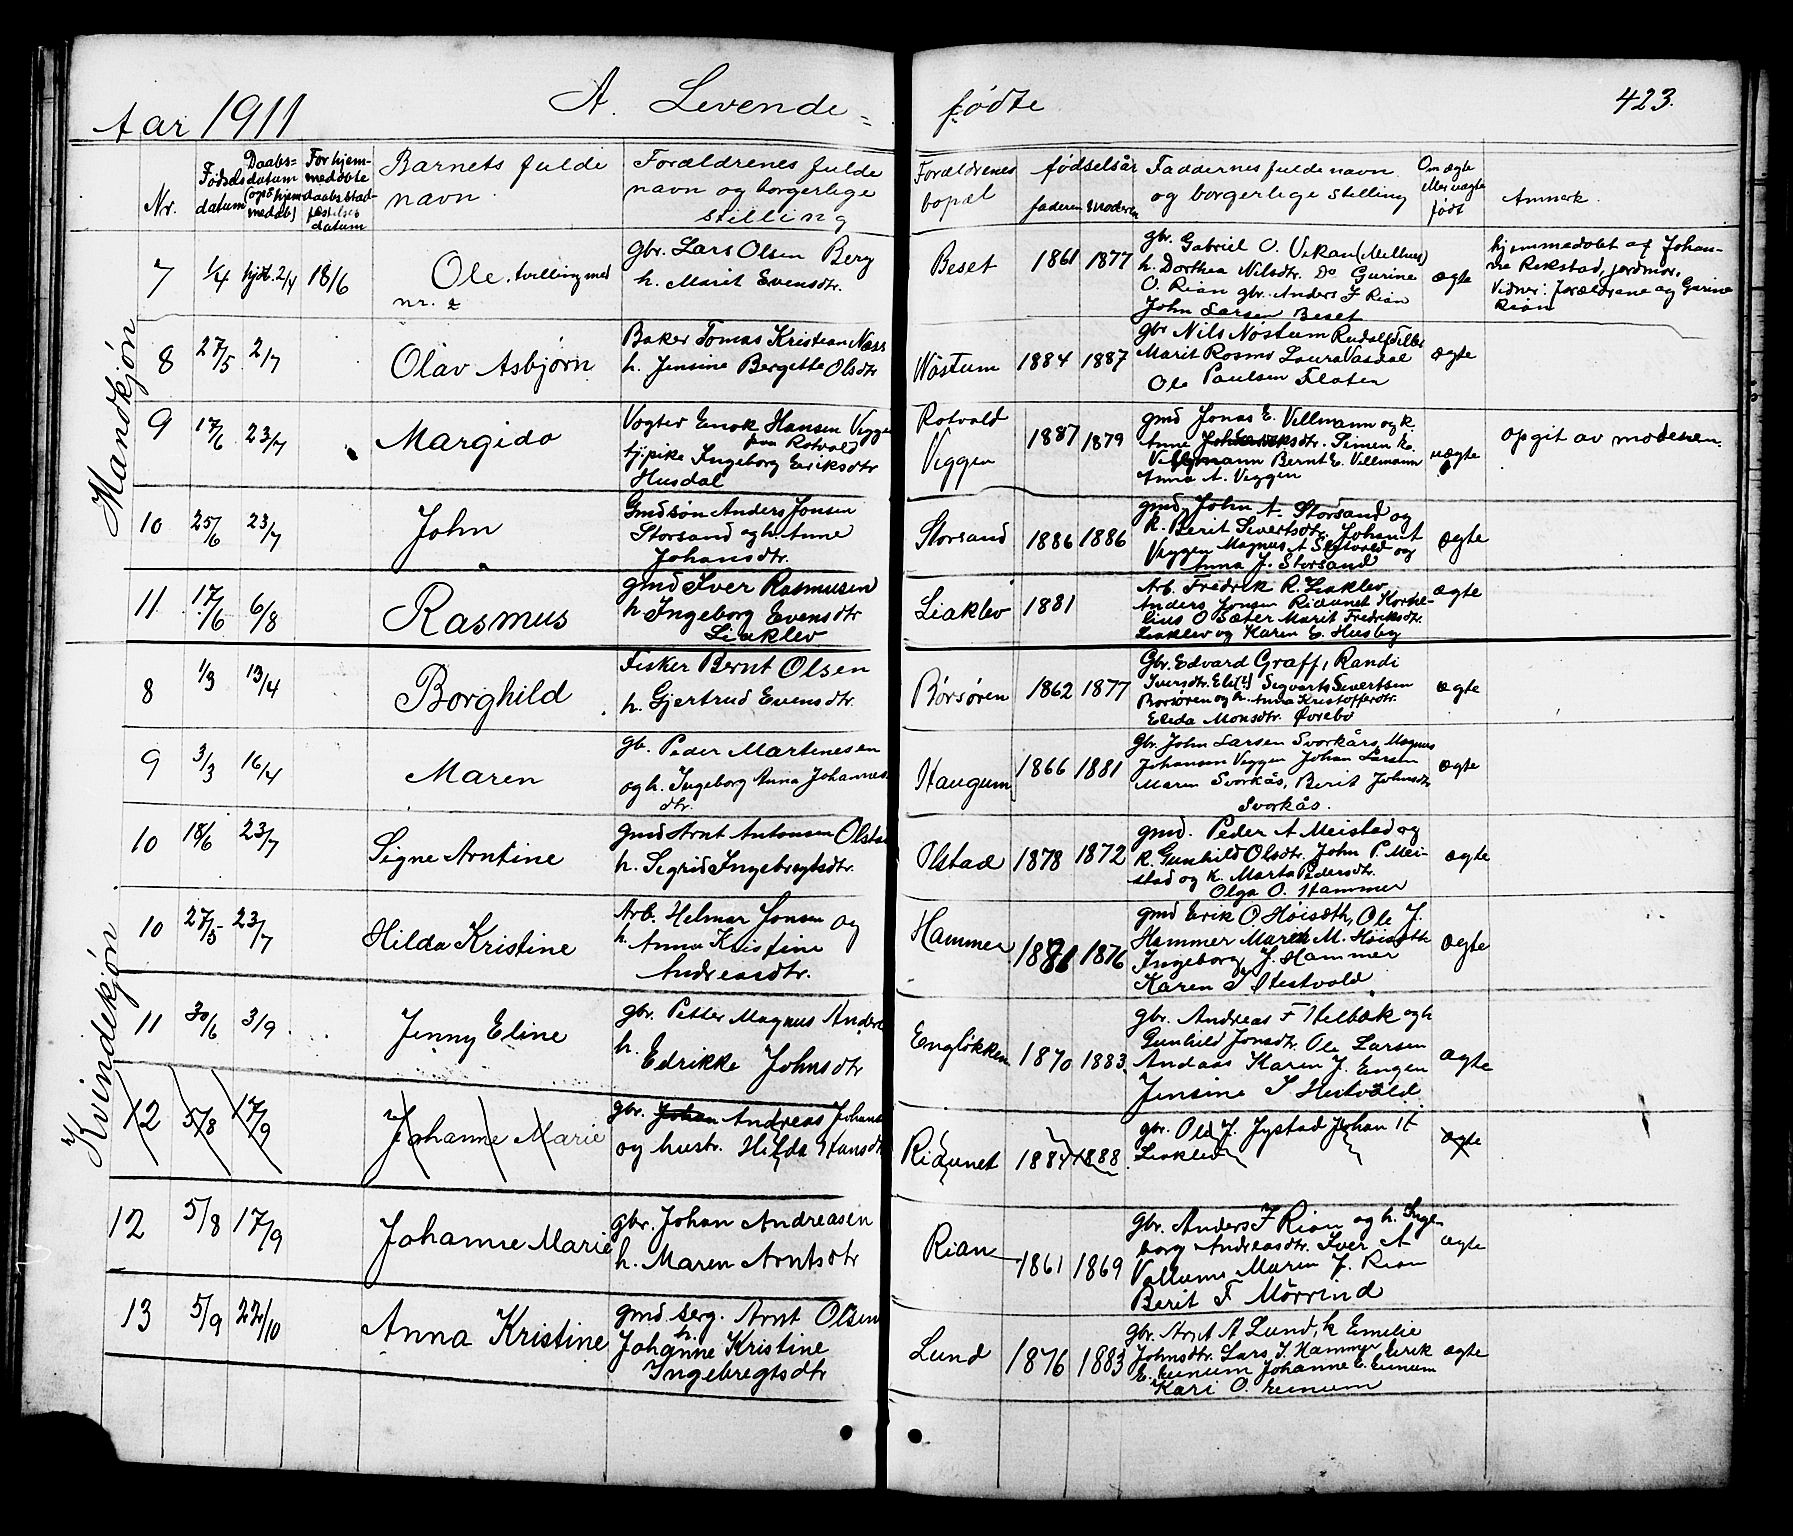 Aar 1911 A. Levende- fødte 423.
Nr. Fødsels datum Daabs- datum (også hjem medøb) For hjem- medøbte daabs stad- fæstelses datum Barnets fulde navn Forældrenes fulde navn og borgerlige stilling Forældrenes bopæl fødselsår faderen Moderen Faddernes fulde navn og borgerlige stilling Om ægte eller uægte født Anmerk.
Mandkjøn
7 1/4 hjdt. 2/4 18/6 Ole. tvilling med
nr. 2
gbr. Lars Olsen Berg
h. Marit Evensdtr.
Beset 1861 1877
gbr. Gabriel O. Vekan (Melhus)
h. Dorthea Nilsdtr. Do Gurine
O. Rian gbr. Anders F Rian
John Larsen Beset
ægte
hjemmedøbt af Johan-
ne Rekstad, jordmor.
Vidner: forældrene og Gurine
Rian
8 27/5 2/7 Olav Asbjørn
Baker Tomas Kristian Næss
h. Jensine Bergitte Olsdtr
Nøstum 1884 1887
gbr Nils Nøstum
Marit Rosmo Laura Vasdal
Ole Paulsen Floten
ægte
9 17/6 23/7 Margido
Vogter Enok Hansen Viggen
fra Rotvold
tj.pike Ingeborg Eriksdtr
Husdal
Rotvold
Viggen
1887 1879
gmd Jonas E. Villmann og k.
Anne Simen E.
Villmann Bernt E. Villmann
Anna A. Viggen
uægte
opgit av moderen.
10 25/6 23/7 John
Gmdsøn Anders Jonsen
Storsand og h. Anne
Johansdtr.
Storsand 1886 1886
gmd John A. Storsand og
k. Berit Sivertsdtr. Johan A
Viggen Magnus A og
Anna J. Storsand
ægte
11 17/6 6/8 Rasmus
gmd Iver Rasmusen
h. Ingeborg Evensdtr
Liaklev
Liaklev 1881
Arb. Fredrik R. Liaklev
Anders Jonsen Riaunet Korne-
lius O Sæter Marit Fredriksdtr.
Liaklev og Karen E. Husby
ægte
Kvindekjøn
8 1/3 13/4 Borghild
Fisker Bernt Olsen
h. Gjertrud Evensdtr.
Børsøren 1862 1877
Gbr. Edvard Graff, Randi
Iversdtr. Sigvart Sivertsen
Børsøren og h. Anna Kristofferdtr.
Elida Monsdtr. Øvrebø
ægte
9 3/3 16/4 Maren
gb. Peder Martinesen
og h. Ingeborg Anna Johannes
dtr.
Haugum 1866 1881
Gbr. John Larsen Svorkås, Magnus
Johansen Viggen Johan Larsen
Maren Svorkås, Berit Johnsdtr
Svorkås.
ægte
10 18/6 23/7 Signe Arntine
gmd Arnt Antonsen Olstad
h. Sigrid Ingebregtsdtr.
Olstad 1878 1872
gmd. Peder A Meistad og
k. Gunhild Olsdtr. John P. Mei-
stad og k. Marta Pedersdtr.
Olga O. Hammer
ægte
10 27/5 23/7 Hilda Kristine
Arb. Helmer Jonsen og
h. Anna Kristine
Andreasdtr.
Hammer 1881 1876
gmd Erik O Høisæth, Ole J.
Hammer Maren M. Høisæth
Ingeborg J. Hammer
Karen S Hestvold
ægte
11 30/6 3/9 Jenny Eline
gbr. Petter Magnus Anders
h.
Edrikke Johnsdtr
Engløkken 1870 1883
gbr. Andreas F Helbæk og h
Gunhild Jonsdtr. Ole Larsen
Andaas Karen J. Engen
Jensine S Hestvold
ægte
12 5/8 17/9 Johanne Marie
gbr. Johan Andreas Johans
og hustr. Hilda Hansdtr
Riaunet 1884 1888
gbr. Ole J. Jystad Johan H
Liaklev
ægte
12 5/8 17/9 Johanne Marie
gbr. Johan Andreasen
h. Maren Arntsdtr
Rian 1861 1869
gbr. Anders F Rian og h. Inge-
borg Andreasdtr. Iver A
Vollum Maren J. Rian
Berit F Mørrind
ægte
13 5/9 22/10 Anna Kristine
gmd serg. Arnt Olsen
h.
Johanne Kristine
Ingebregtsdtr
Lund 1876 1883
gbr. Arnt A Lund, k Emelie
Johnsdtr. Lars J. Hammer Eerik
E. Eunum Johanne E. Eunum
Kari O. Eunum
ægte